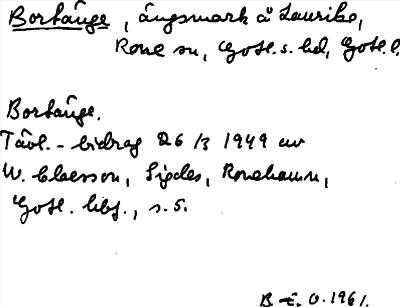 Bortänge, ängsmark å Laurike,
Rone sn, Gotl. s. hd, Gotl. l.
Bortänge.
Tävl.-bidrag 26/3 1949 av
W. Claesson, Sigdes, Ronehamn,
Gotl. bibl., s. 5.
B. E. O. 1961.